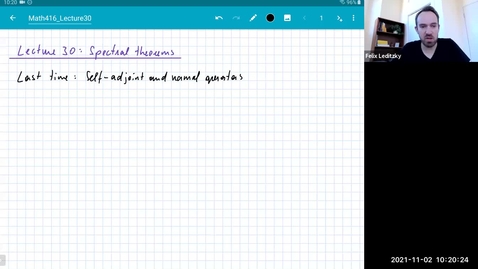 10:20
95%
Math416_Lecture30
1
Lecture 30: Spectral theorems
Last time: Self-adjoint and normal operators
Felix Leditzky
2021-11-02 10:20:24